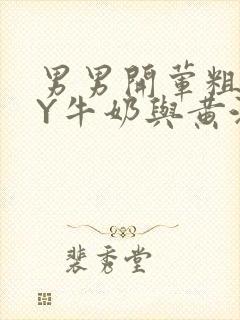 男男開葷粗
Y牛奶與黄
裴秀堂